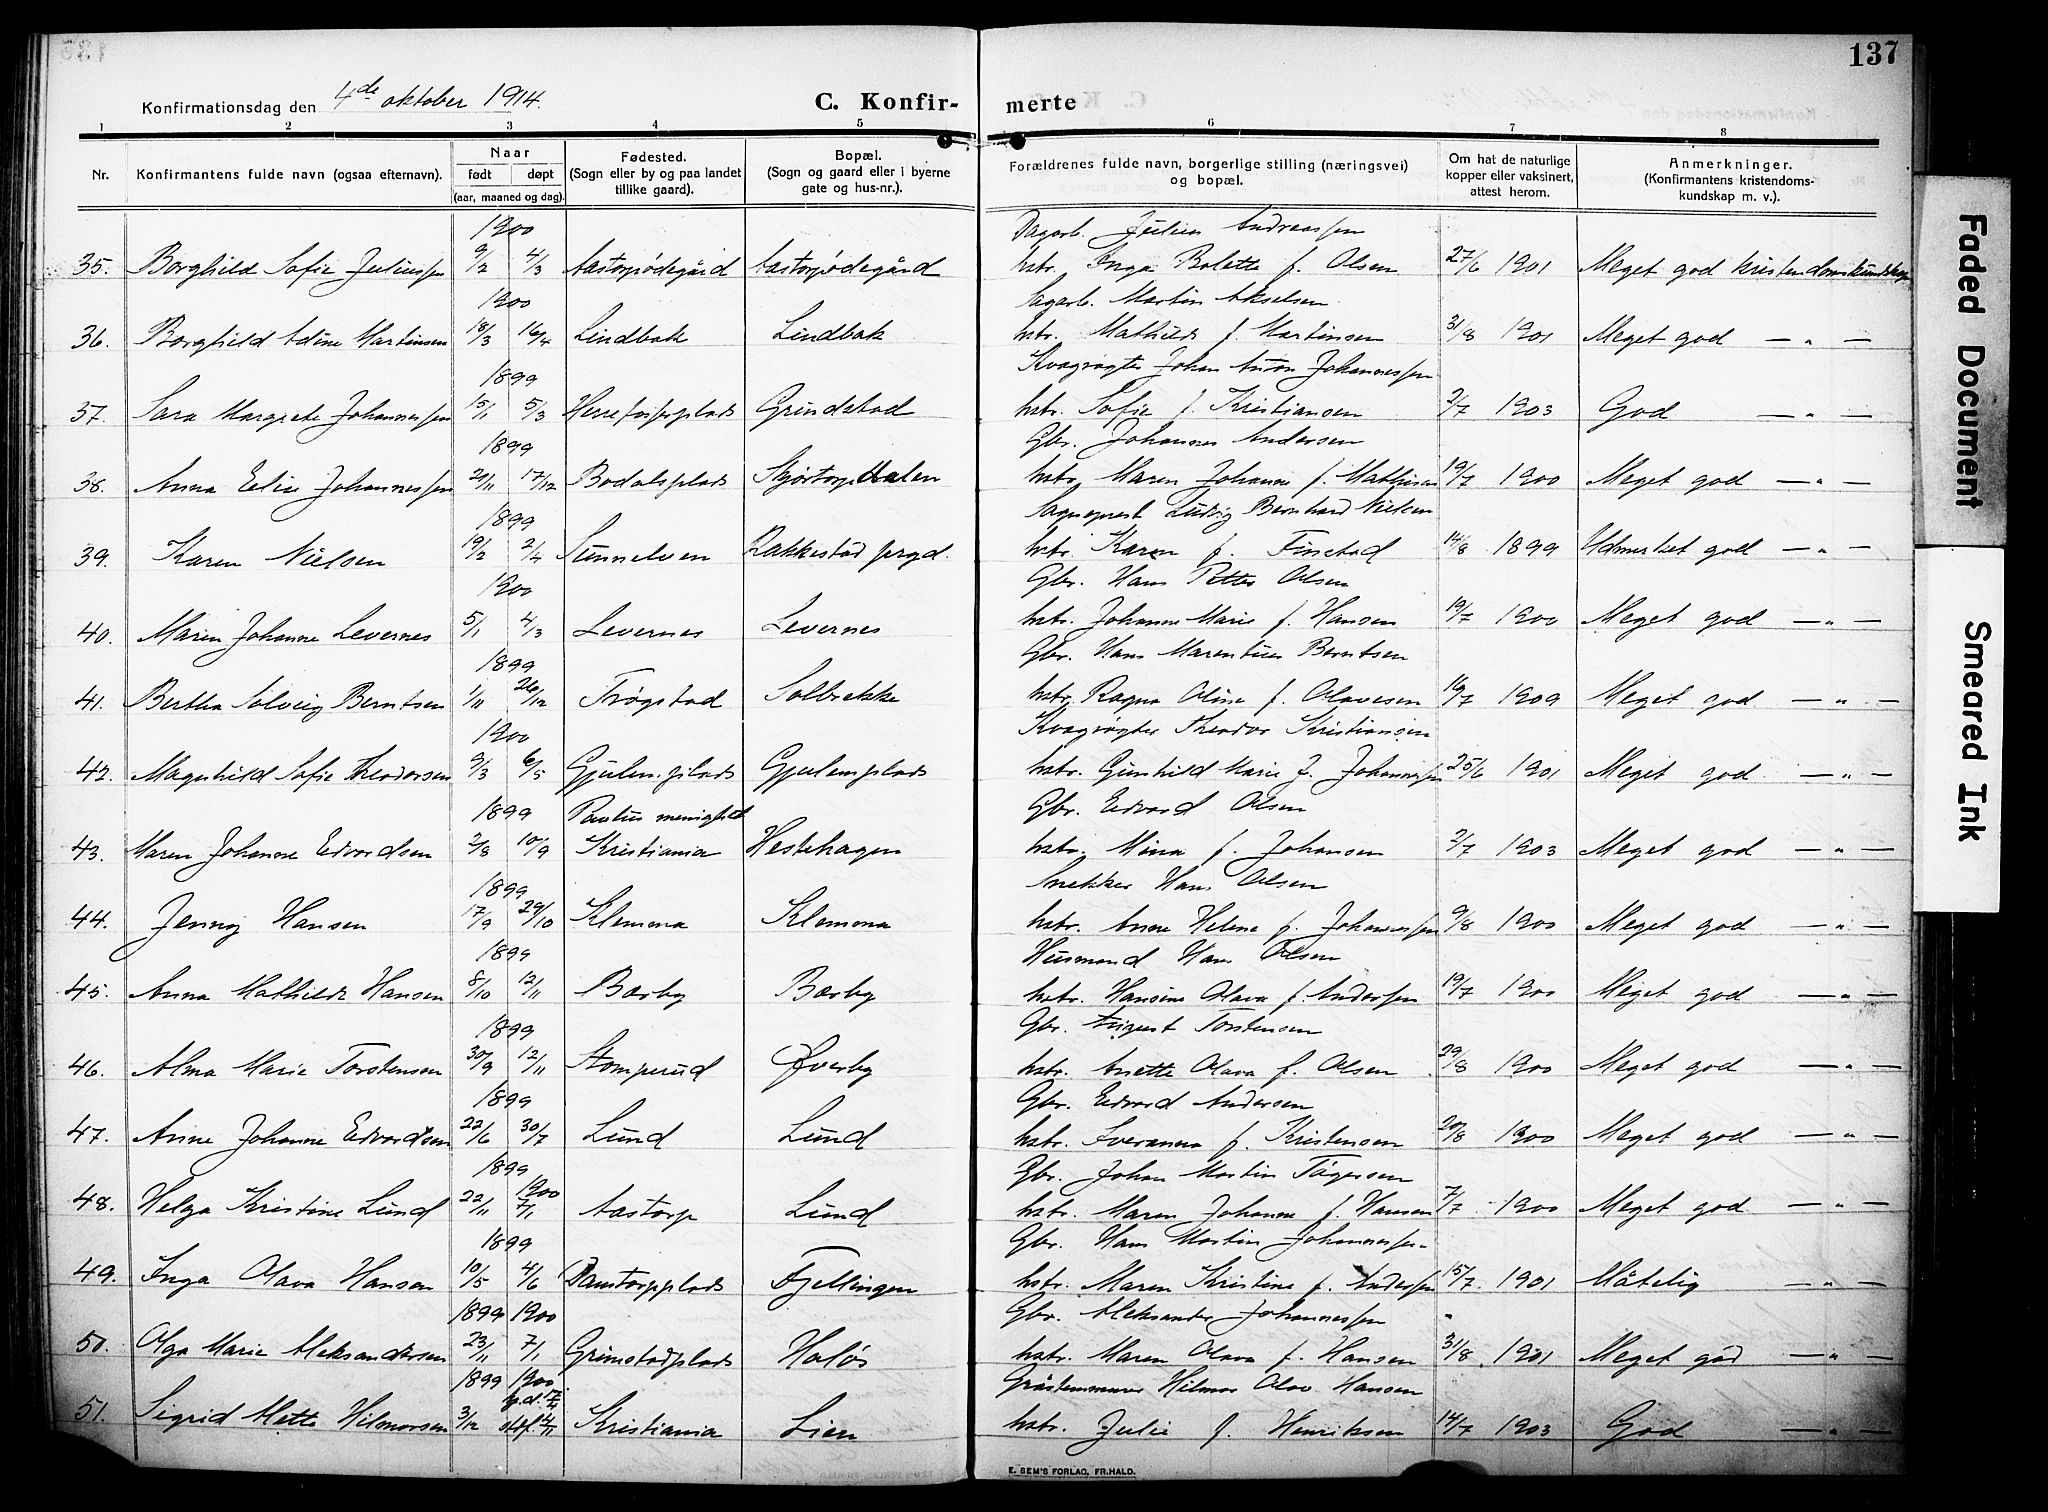 137
Konfirmationsdag den 4de oktober 1914.
C. Konfir- merte
1 2 3 4 5 6 7 8
Nr.
Konfirmantens fulde navn (ogsaa efternavn).
Naar
født døpt
(aar, maaned og dag).
Fødested.
(Sogn eller by og paa landet
tillike gaard).
Bopæl.
(Sogn og gaard eller i byerne
gate og hus-nr.).
Forældrenes fulde navn, borgerlige stilling (næringsvei)
og bopæl.
Om hat de naturlige
kopper eller vaksinert,
attest herom.
Anmerkninger.
(Konfirmantens kristendoms-
kundskap m. v.).
1900 Dagarb. Julius Andreassen
35. Borghild Sofie Juliussen 9/2 4/3 Aastorpødegård Aastorpødegård hstr. Inga Bolette f. Olsen 27/6 1901 Meget god kristendomskundskap
1900 Sagarb. Martin Akselsen
36. Borghild Adine Martinsen 18/3 16/4 Lindbak Lindbak hstr. Mathilde f. Martinsen 31/8 1901 Meget god — „ —
1899 Kvægrøgter Johan Anton Johannessen
37. Sara Margrete Johannessen 15/1 5/3 Grindstad hstr. Sofie f. Kristiansen 2/7 1903 God — „ —
1899 Gbr. Johannes Andersen
38. Anna Eline Johannessen 21/11 17/12 Bodalsplads Skjørtorpdalen hstr. Maren Johanne f. Mathisen 19/7 1900 Meget god — „ —
1899 Sogneprest Ludvig Bernhard Nielsen
39. Karen Nielsen 19/2 2/4 Sunnelven Rakkestad prgd. hstr. Karen f. Finstad 14/8 1899 Udmerket god — „ —
1900 Gbr. Hans Petter Olsen
40. Maren Johanne Levernes 5/1 4/3 Levernes Levernes hstr. Johanne Marie f. Hansen 19/7 1900 Meget god — „ —
1899 Gbr. Hans Marentius Berntsen
41. Bertha Solveig Berntsen 1/11 26/12 Trøgstad Solbrekke hstr. Ragna Oline f. Olavesen 16/7 1909 Meget god — „ —
1900 Kvægrøgter Theodor Kristiansen
42. Magnhild Sofie Theodorsen 9/3 6/5 Gjulem.plads Gjulemplads hstr. Gunhild Marie f. Johannessen 25/6 1901 Meget god — „ —
1899 Paulus menighet Gbr. Edvard Olsen
43. Maren Johanne Edvardsen 2/8 10/9 Kristiania Hestehagen hstr. Mina f. Johansen 2/7 1903 Meget god — „ —
1899 Snekker Hans Olsen
44. Jenny Hansen 17/9 29/10 Klemona Klemona hstr. Anne Helene f. Johannessen 9/8 1900 Meget god — „ —
1899 Husmand Hans Olsen
45. Anna Mathilde Hansen 8/10 12/11 Bærby Bærby hstr. Hansine Olava f. Anderssen 19/7 1900 Meget god — „ —
1899 Gbr. August Torstensen
46. Alma Marie Torstensen 30/9 12/11 Stomperud Øverby hstr. Anette Olava f. Olsen 29/8 1900 Meget god — „ —
1899 Gbr. Edvard Andersen
47. Anne Johanne Edvardsen 22/6 30/7 Lund Lund hstr. Sveranna f. Kristensen 20/8 1900 Meget god — „ —
1899 1900 Gbr. Johan Martin Tågersen
48. Helga Kristine Lund 22/11 7/1 Aastorp Lund hstr. Maren Johanne f. Hansen 7/7 1900 Meget god — „ —
1899 Gbr. Hans Martin Johannessen
49. Inga Olava Hansen 10/5 4/6 Damtorpplads Fjellingen hstr. Maren Kristine f. Anderssen 15/7 1901 Måtelig — „ —
1899 1900 Gbr. Aleksander Johannessen
50. Olga Marie Aleksandersen 23/11 7/1 Grimstadplads Holøs hstr. Maren Olava f. Hansen 31/8 1901 Meget god — „ —
1899 1900 Hilmar Olav Hansen
51. Sigrid Mette Hilmarsen 3/12 Kristiania Lien hstr. Julie f. Henriksen 14/7 1903 God — „ —
E. SEM'S FORLAG, FR.HALD.
Faded Document
Smeared Ink